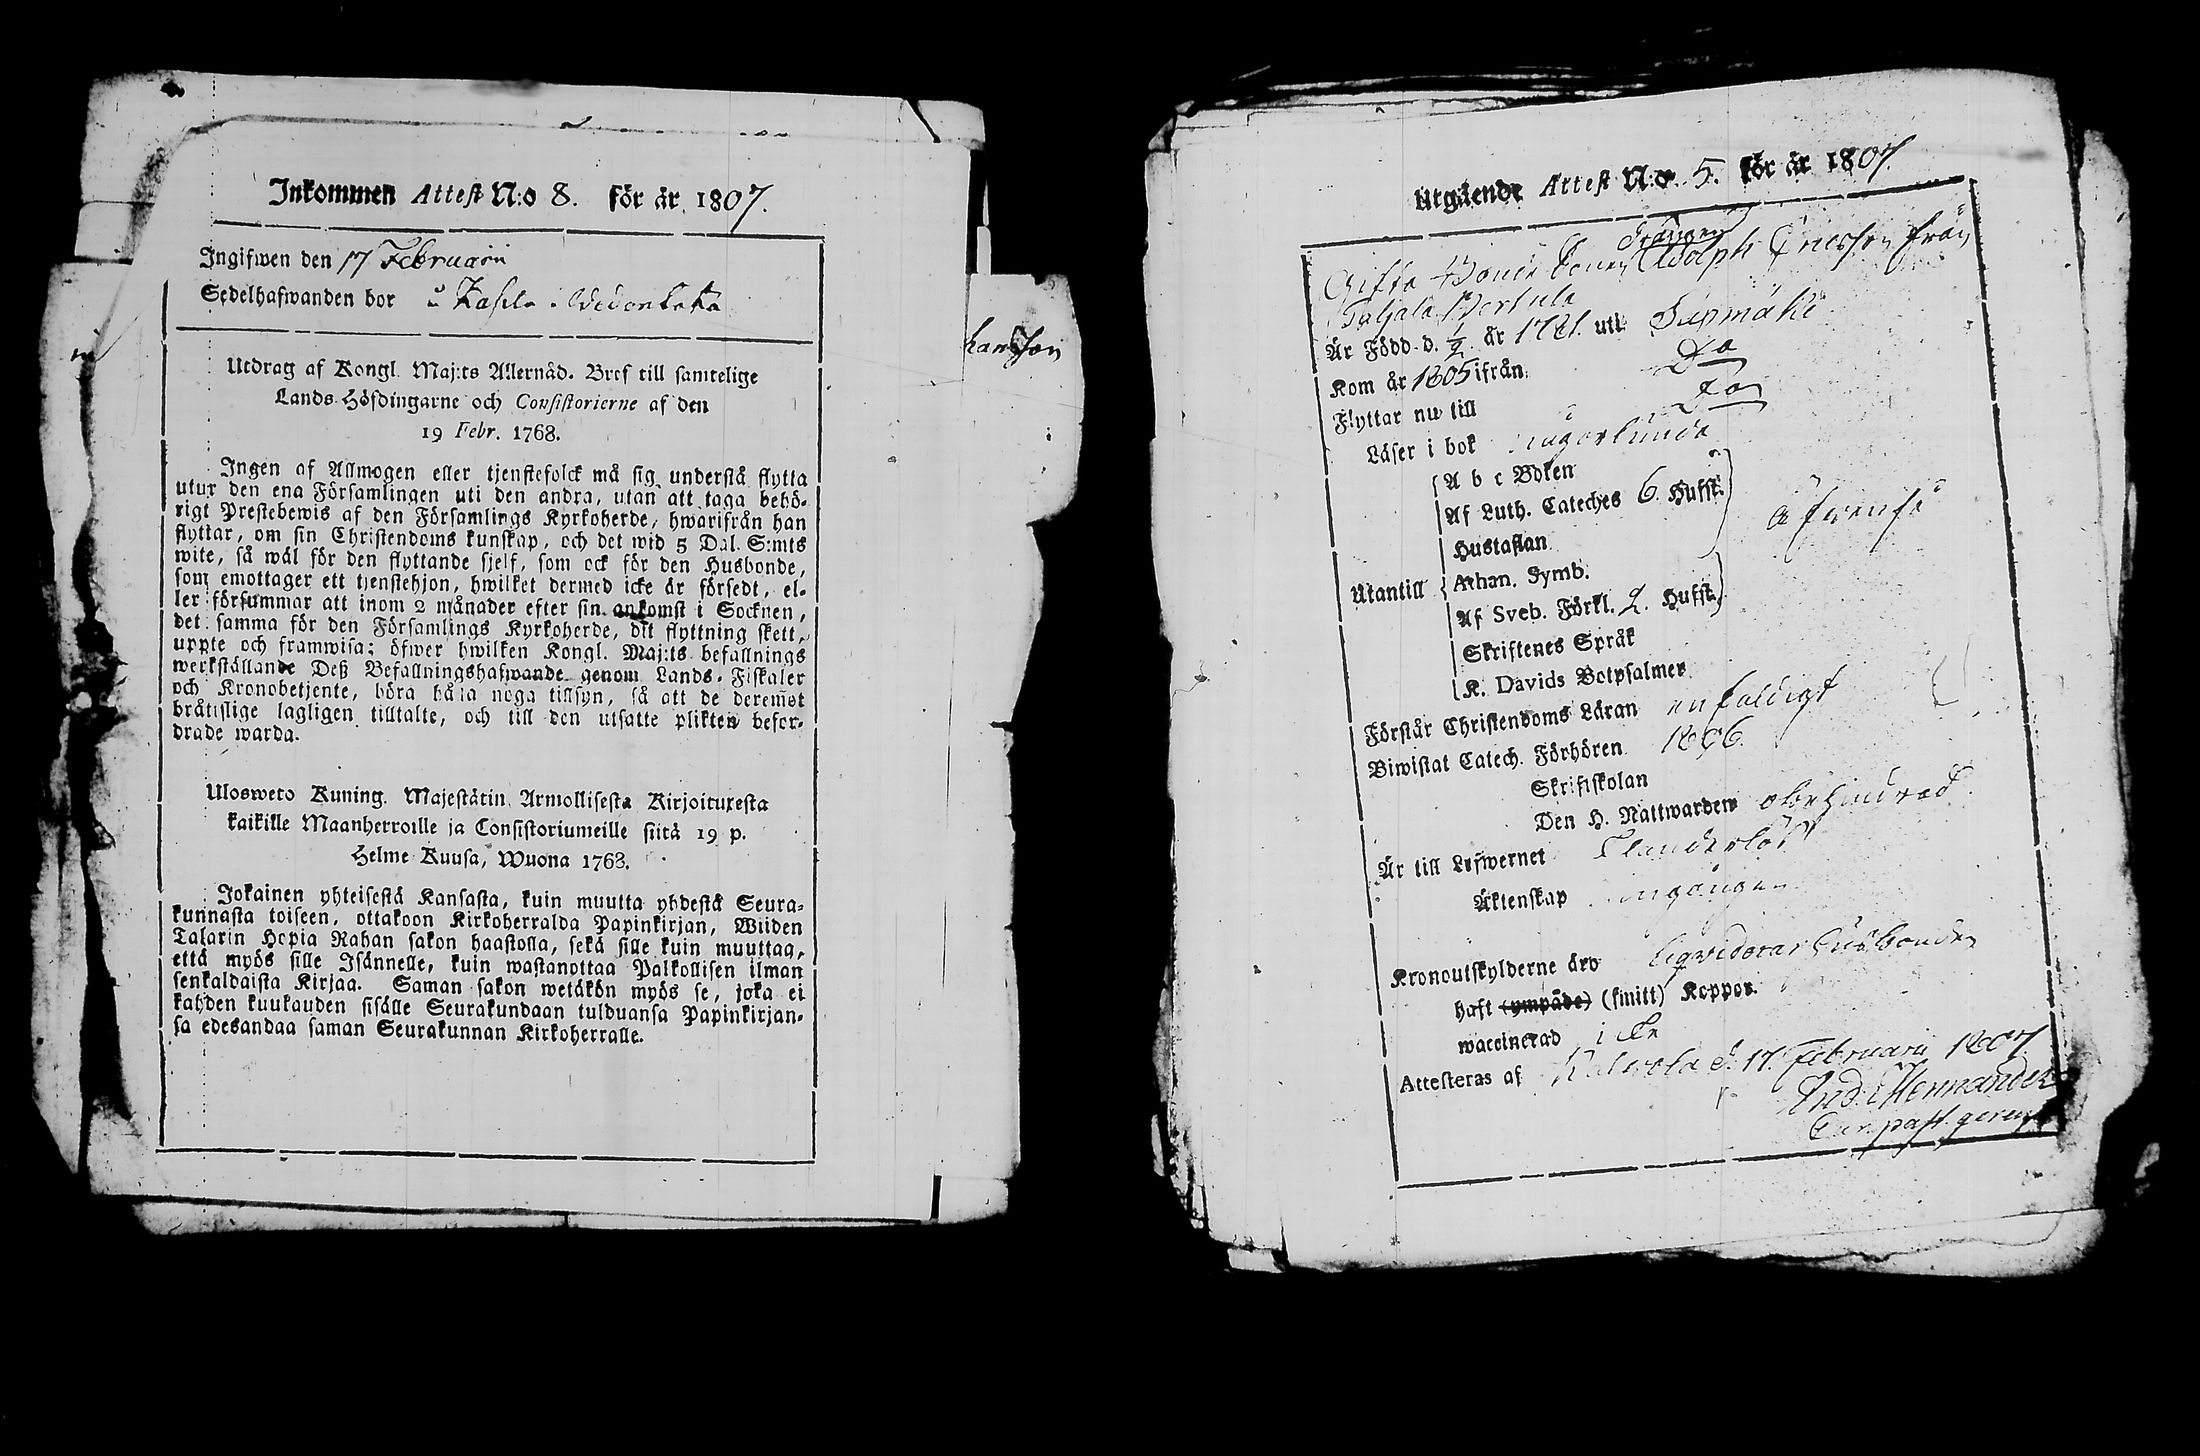 Inkommen Attest N:o 8. för år 1807.
Ingifwen den 17 Februarii
Sedelhafwanden bor
Utdrag af Kongl. Maj:ts Allernåd. Bref till samtelige
Lands-Höfdingarne och Consistorierne af den
19 Febr. 1768.
Ingen af Allmogen eller tjenstefolck må sig understå flytta
utur den ena Församlingen uti den andra, utan att taga behö-
rigt Prestebewis af den Församlings Kyrkoherde, hwarifrån han
flyttar, om sin Christendoms kunskap, och det wid 5 Dal. S:mts
wite, så wäl för den flyttande sjelf, som ock för den Husbonde,
som emottager ett tjenstehjon, hwilket dermed icke är försedt, el-
ler försummar att inom 2 månader efter sin ankomst i Socknen,
det samma för den Församlings Kyrkoherde, dit flyttning skett,
uppte och framwisa; öfwer hwilken Kongl. Maj:ts befallnings
werkställande Deß Befallningshafwande genom Lands-Fiskaler
och Kronobetjente, böra hafa noga tillsyn, så att de deremot
bråtislige lagligen tilltalte, och till den utsatte plikten befor-
drade warda.
Ulosweto Kuning. Majestätin Armollisesta Kirjoituxesta
kaikille Maanherroille ja Consistoriumeille siitä 19 p.
Helme Kuusa, Wuona 1768.
Jokainen yhteisestä Kansasta, kuin muutta yhdestä Seura-
kunnasta toiseen, ottakoon Kirkoherralda Papinkirjan, Wiiden
Talarin Hopia Rahan sakon haastolla, sekä sille kuin muuttaa,
että myös sille Isännelle, kuin wastanottaa Palkollisen ilman
senkaldaista Kirjaa. Saman sakon wetäkön myös se, joka ei
kahden kuukauden sisälle Seurakundaan tulduansa Papinkirjan-
sa edesandaa saman Seurakunnan Kirkoherralle.
Utgående Attest N:o 5. för år 1807.
Gifta Bonde Sonen Adolph Ericsson från
Är Född d. 1/2 år 1781. uti
Kom år 1805 ifrån Do
Flyttar nu till Do
Läser i bok
A b c Boken
Af Luth. Cateches 6. Hufst.
Hustaflan
Utantill Athan. Symb.
Af Sveb. Förkl. 2. Hufst.
Skriftenes Språk
K. Davids Botpsalmer
Förstår Christendoms Läran enfaldigt
Biwistat Catech. Förhören 1806.
Skriftskolan
Den H. Nattwarden obehindrad
Är till Lefwernet Klanderlös
Äktenskap ingången
Kronoutskylderne äro liqviderar husbonden
haft (ympåde) (smitt) Koppor.
waccinerad
Attesteras af Kalvola d. 17. Februarii 1807